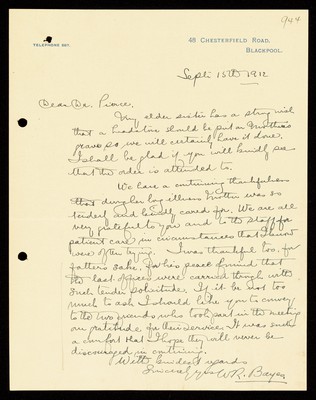 944
TELEPHONE 667.
48 CHESTERFIELD ROAD,
BLACKPOOL.
Sept. 15th 1912
Dear Dr. Pierce,
My elder sister has a strong wish
that a headstone should be put on Mother's
grave so we will certainly have it done.
I shall be glad if you will kindly see
that the order is attended to.
We have a continuing thankfulness
that during her long illness Mother was so
tenderly and kindly cared for. We are all
very grateful to you and to the staff for
patient care in circumstances that
were often trying. I was thankful too, for
father's sake, & for his peace of mind that
the last offices were carried through with
such tender solicitude. If it be not too
much to ask I should like you to convey
to the two friends who took part in the meeting
our gratitude for their service. It was such
a comfort that I hope they will never be
discouraged in continuing.
With kindest regards
Sincerely yrs W.R.